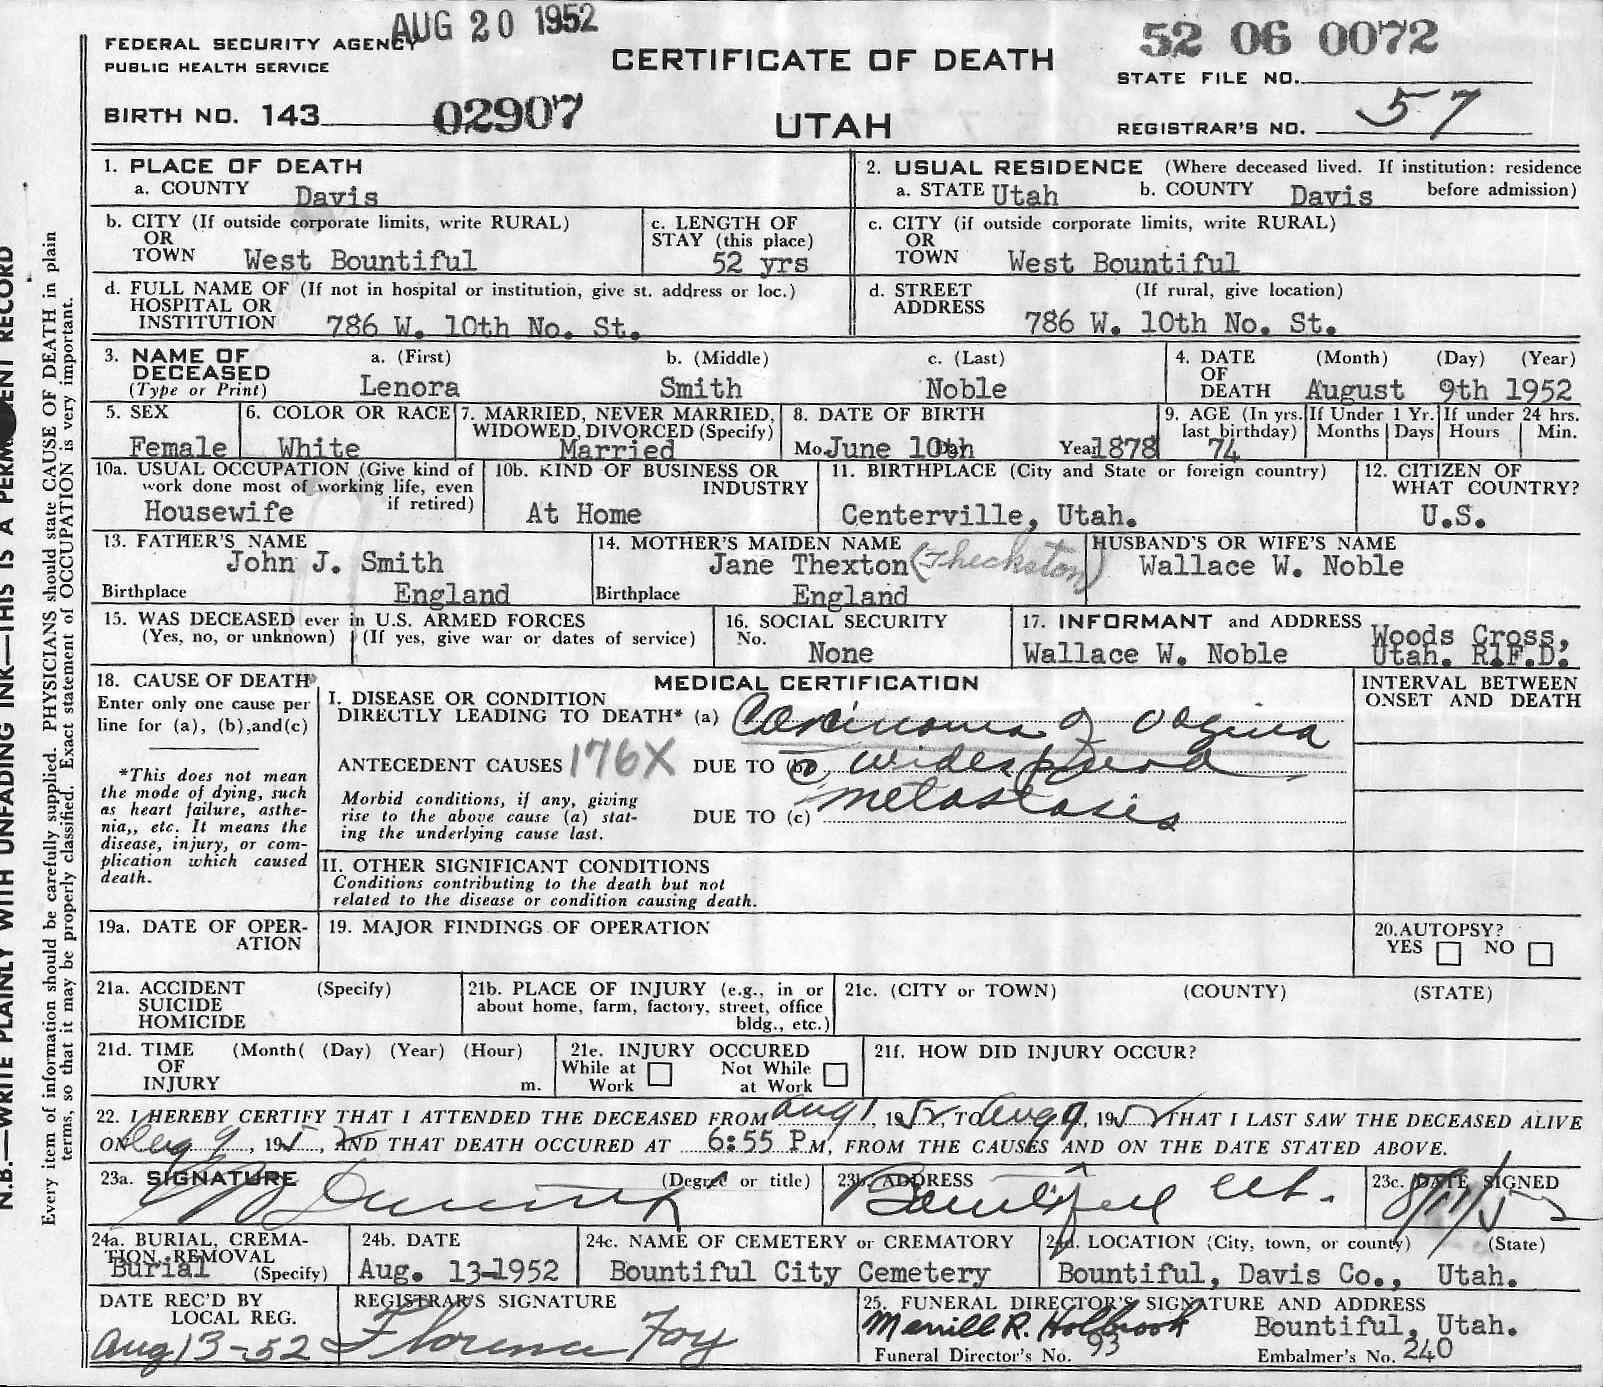 AUG 20 1952
52 06 0072
FEDERAL SECURITY AGENCY
PUBLIC HEALTH SERVICE
CERTIFICATE OF DEATH
STATE FILE NO.
BIRTH NO. 143 02907
UTAH
REGISTRAR'S NO. 57
1. PLACE OF DEATH
a. COUNTY Davis
2. USUAL RESIDENCE (Where deceased lived. If institution: residence before admission)
a. STATE Utah b. COUNTY Davis
b. CITY (If outside corporate limits, write RURAL)
OR
TOWN West Bountiful
c. LENGTH OF
STAY (this place)
52 yrs
c. CITY (if outside corporate limits, write RURAL)
OR
TOWN West Bountiful
d. FULL NAME OF (If not in hospital or institution, give st. address or loc.)
HOSPITAL OR
INSTITUTION 786 W. 10th No. St.
d. STREET (If rural, give location)
ADDRESS
786 W. 10th No. St.
3. NAME OF DECEASED
(Type or Print)
a. (First) b. (Middle) c. (Last)
Lenora Smith Noble
4. DATE OF DEATH (Month) (Day) (Year)
August 9th 1952
5. SEX
Female
6. COLOR OR RACE
White
7. MARRIED, NEVER MARRIED,
WIDOWED, DIVORCED (Specify)
Married
8. DATE OF BIRTH
Mo. June 10th Year 1878
9. AGE (In yrs. last birthday)
74
If Under 1 Yr.
Months Days
If under 24 hrs.
Hours Min.
10a. USUAL OCCUPATION (Give kind of
work done most of working life, even
if retired)
Housewife
10b. KIND OF BUSINESS OR
INDUSTRY
At Home
11. BIRTHPLACE (City and State or foreign country)
Centerville, Utah.
12. CITIZEN OF
WHAT COUNTRY?
U.S.
13. FATHER'S NAME
John J. Smith
Birthplace England
14. MOTHER'S MAIDEN NAME
Jane Thexton (Theckston)
Birthplace England
HUSBAND'S OR WIFE'S NAME
Wallace W. Noble
15. WAS DECEASED ever in U.S. ARMED FORCES
(Yes, no, or unknown) (If yes, give war or dates of service)
16. SOCIAL SECURITY
No.
None
17. INFORMANT and ADDRESS
Wallace W. Noble Woods Cross,
Utah. R.F.D.
18. CAUSE OF DEATH
Enter only one cause per
line for (a), (b),and(c)
*This does not mean
the mode of dying, such
as heart failure, asthe-
nia,, etc. It means the
disease, injury, or com-
plication which caused
death.
MEDICAL CERTIFICATION
INTERVAL BETWEEN
ONSET AND DEATH
I. DISEASE OR CONDITION
DIRECTLY LEADING TO DEATH* (a) Carcinoma of vagina
ANTECEDENT CAUSES 176X DUE TO (b) c widespread
Morbid conditions, if any, giving
rise to the above cause (a) stat-
ing the underlying cause last.
DUE TO (c) metastasis
II. OTHER SIGNIFICANT CONDITIONS
Conditions contributing to the death but not
related to the disease or condition causing death.
19a. DATE OF OPER-
ATION
19. MAJOR FINDINGS OF OPERATION
20.AUTOPSY?
YES NO
21a. ACCIDENT (Specify)
SUICIDE
HOMICIDE
21b. PLACE OF INJURY (e.g., in or
about home, farm, factory, street, office
bldg., etc.)
21c. (CITY or TOWN) (COUNTY) (STATE)
21d. TIME (Month( (Day) (Year) (Hour)
OF
INJURY m.
21e. INJURY OCCURED
While at Work Not While at Work
21f. HOW DID INJURY OCCUR?
22. I HEREBY CERTIFY THAT I ATTENDED THE DECEASED FROM Aug 1, 1952, TO Aug 9, 1952 THAT I LAST SAW THE DECEASED ALIVE
ON Aug 9, 195 2, AND THAT DEATH OCCURED AT 6:55 P.M, FROM THE CAUSES AND ON THE DATE STATED ABOVE.
23a. SIGNATURE (Degree or title)
23b. ADDRESS
Bountiful Ut.
23c. DATE SIGNED
8/11/52
24a. BURIAL, CREMA-
TION, REMOVAL
Burial (Specify)
24b. DATE
Aug. 13-1952
24c. NAME OF CEMETERY or CREMATORY
Bountiful City Cemetery
24d. LOCATION (City, town, or county) (State)
Bountiful, Davis Co., Utah.
DATE REC'D BY
LOCAL REG.
Aug 13-52
REGISTRAR'S SIGNATURE
Florence Foy
25. FUNERAL DIRECTOR'S SIGNATURE AND ADDRESS
Merrill R. Holbrook Bountiful, Utah.
Funeral Director's No. 93 Embalmer's No. 240
N.B.—WRITE PLAINLY WITH UNFADING INK—THIS IS A PERMANENT RECORD
Every item of information should be carefully supplied. PHYSICIANS should state CAUSE OF DEATH in plain
terms, so that it may be properly classified. Exact statement of OCCUPATION is very important.